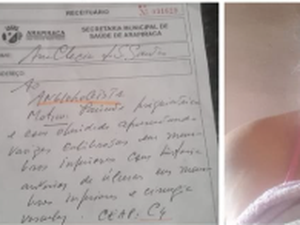 RECEITUÁRIO
ARAPIRACA
SECRETARIA MUNICIPAL DE
SAÚDE DE ARAPIRACA
Ao
ANGIOLOGISTA
Motivo: Paciente
e com obesidade apresentando
varizes calibrosas em mem-
bros inferiores com história
anterior de úlceras em mem-
bros inferiores e cirurgia
CEAP: C4